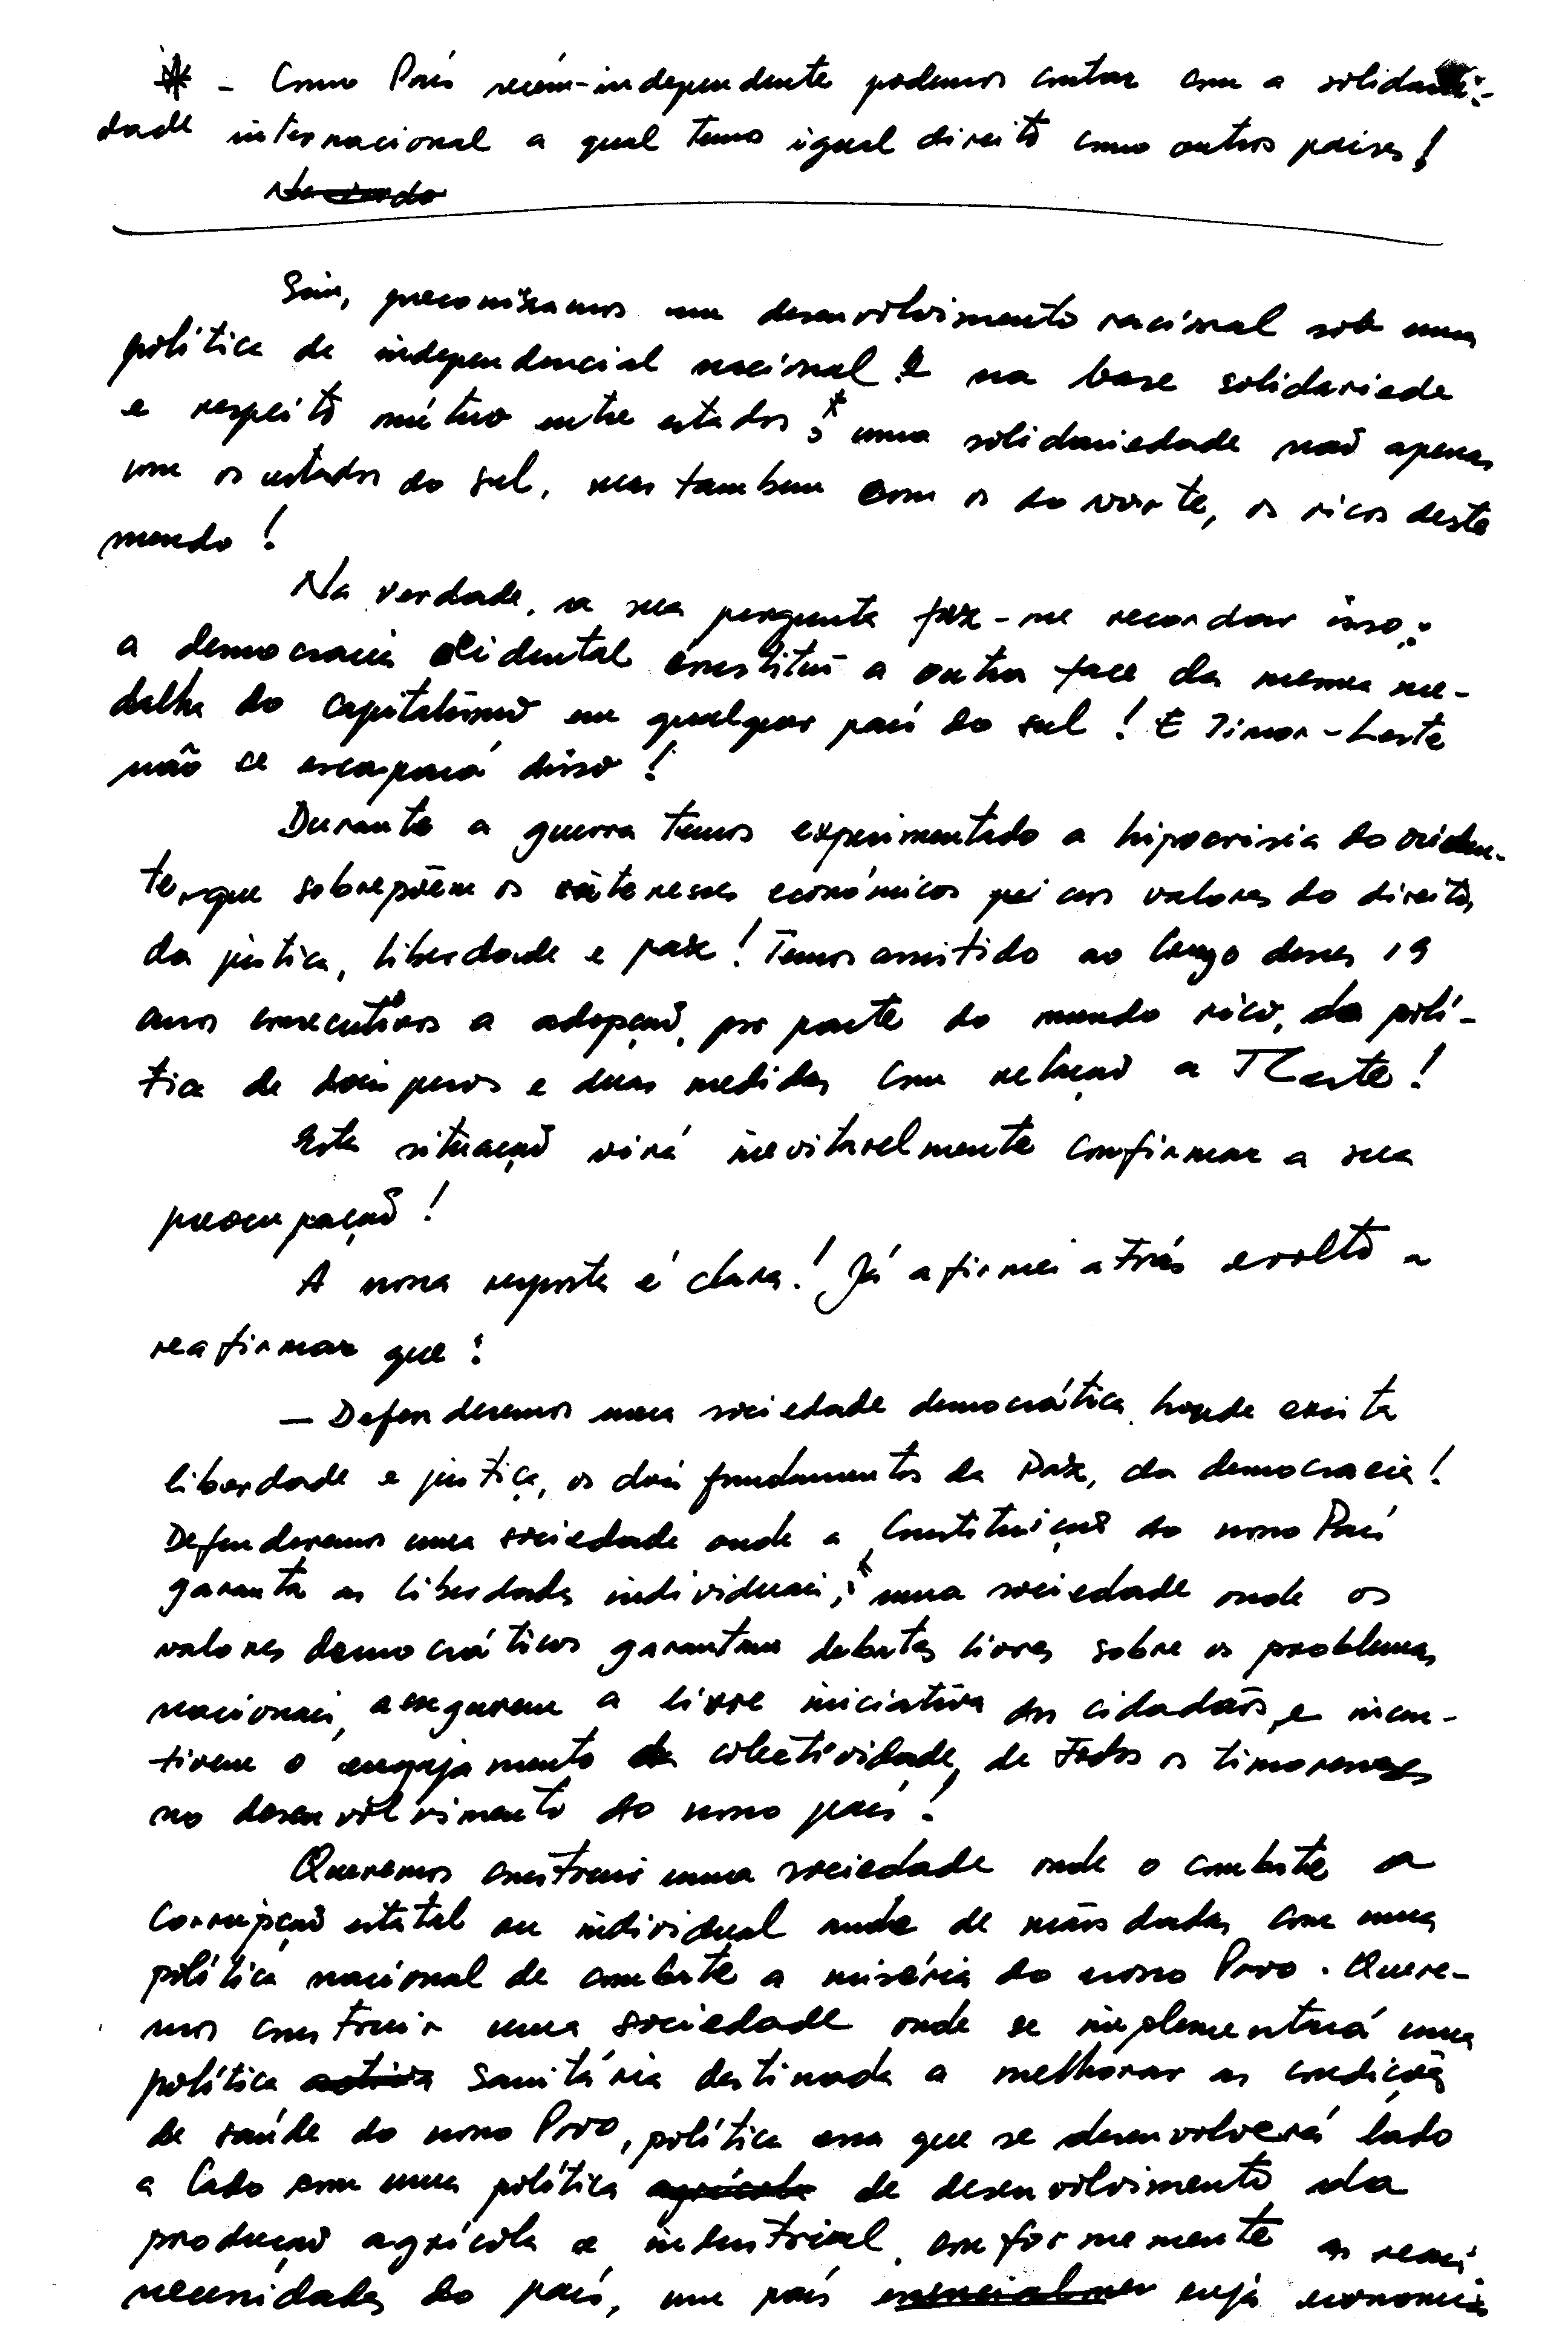 * - Como País recém-independente podemos contar com a solidarie-
dade internacional a qual temos igual direito como outros países!
Sim, preconizamos um desenvolvimento racional sob uma
política de independencial nacional e na base solidariede
e respeito mútuo entre estados; * uma solidariedade não apenas
com os estados do sul, mas tambem com os do norte, os ricos deste
mundo!
Na verdade, a sua pergunta faz-me recordar isso:
a democracia ocidental constitui a outra face da mesma me-
dalha do capitalismo em qualquer país do sul! E Timor-Leste
não se escapará disso!
Durante a guerra temos experimentado a hipocrisia do ociden-
te, que sobrepõem os interesses económicos aos valores do direito,
da justica, liberdade e paz! Temos assistido ao longo desses 19
anos consecutivos a adopção, por parte do mundo rico, da polí-
tica de dois pesos e duas medidas com relação a TLeste!
Esta situação virá inevitavelmente confirmar a sua
preocupação!
A nossa resposta é clara! Já afirmei atrás e volto a
reafirmar que:
— Defenderemos uma sociedade democrática, honde exista
liberdade e justiça, os dois fundamentos da Paz, da democracia!
Defenderemos uma sociedade onde a Constituição do nosso País
garanta as liberdades individuais; * uma sociedade onde os
valores democráticos garantam debates livres sobre os problemas
nacionais, assegurem a livre iniciativa dos cidadãos, e incen-
tivem o engajamento da colectividade, de todos os timorenses
no desenvolvimento do nosso país!
Queremos construir uma sociedade onde o combate a
corrupção estatal ou individual ande de mãos dadas com uma
política nacional de combate a miséria do nosso Povo. Quere-
mos construir uma sociedade onde se implementará uma
política activa sanitária destinada a melhorar as condições
de saúde do nosso Povo, política essa que se desenvolverá lado
a lado com uma política agrícola de desenvolvimento da
produção agrícola e industrial, conformemente as reais
necessidades do país, um país essencialmen cuja economia